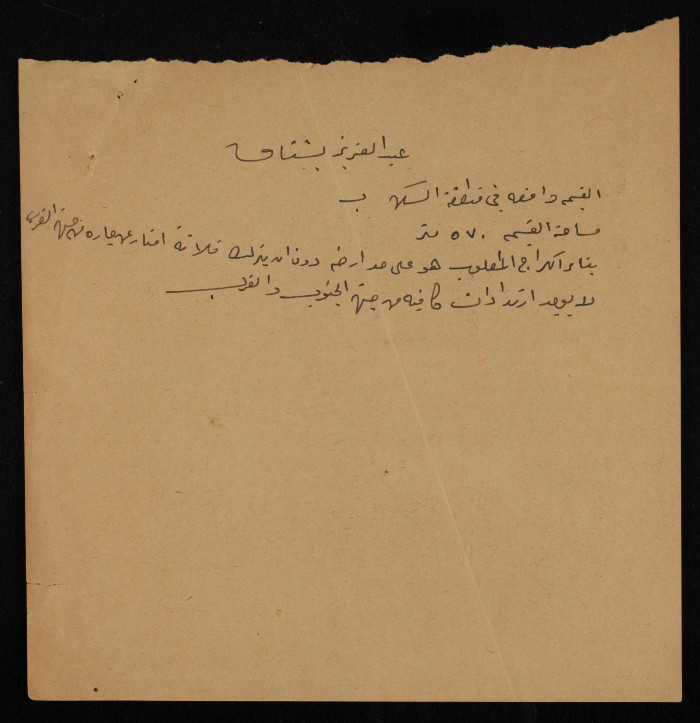 عبد العزيز بشناق
القسيمه واقعه في منطقة السكن ب
مساحة القسيمه ٥٧٠ متر
بناء الكراج المطلوب هو على حد ارضه دون ان يترك ثلاثة امتار عن جاره من جهة الغرب
لا يوجد ارتدادات كافيه من جهة الجنوب والغرب